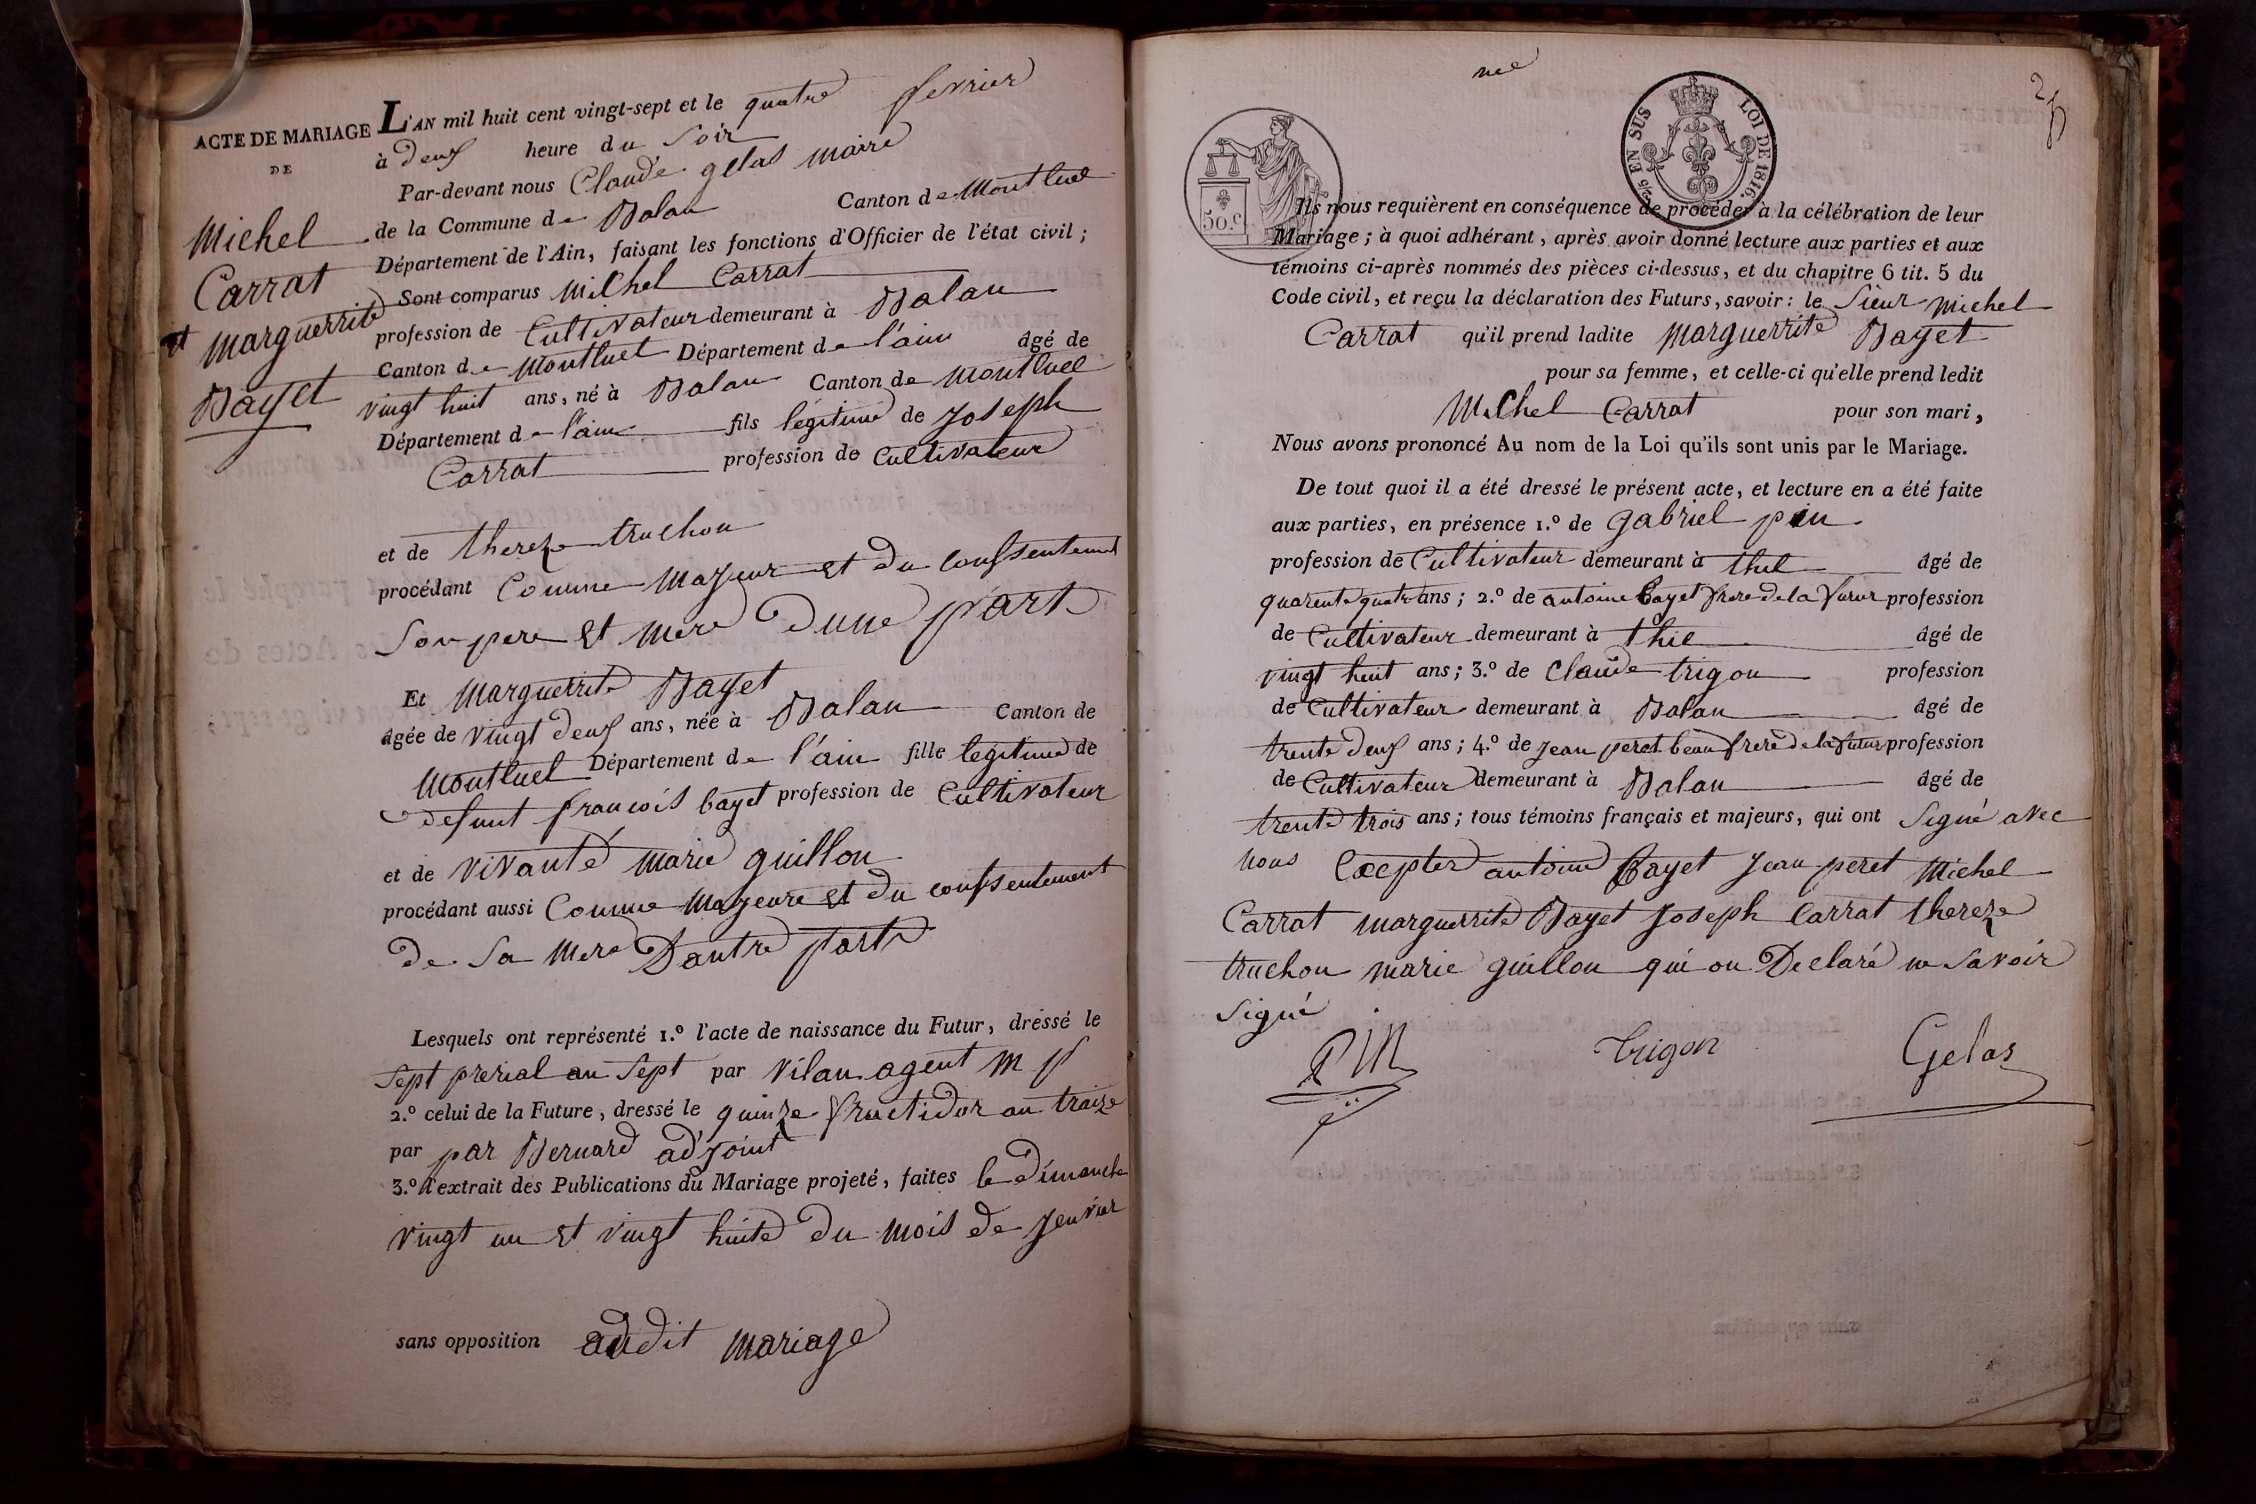 ACTE DE MARIAGE
DE
Michel
Carrat
et marguerrite
Bayet
L'AN mil huit cent vingt-sept et le quatre fevrier
à deux heure du Soir
Par-devant nous Claude gelas maire
de la Commune de Balan Canton de Montluel
Département de l'Ain, faisant les fonctions d'Officier de l'état civil ;
Sont comparus Michel Carrat
profession de Cultivateur demeurant à Balan
Canton de Montluel Département de l'ain âgé de
vingt huit ans, né à Balan Canton de Montluel
Département de l'ain fils légitime de Joseph
Carrat profession de Cultivateur
et de thereze truchon
procédant Comme Majeur et du consentement
Son pere et mere D'une part
Et Marguerrite Bayet
âgée de vingt deux ans, née à Balan Canton de
Montluel Département de l'ain fille legitime de
defunt francois bayet profession de Cultivateur
et de vivante marie guillon
procédant aussi Comme Majeure et du consentement
de Sa Mere D'autre part
Lesquels ont représenté 1.º l'acte de naissance du Futur, dressé le
Sept prerial an Sept par vilan agent m p
2.º celui de la Future, dressé le quinze fructidor an traize
par par Bernard adjoint
3.º l'extrait des Publications du Mariage projeté, faites le Dimanche
vingt un et vingt huite du mois de Jenvier
sans opposition audit mariage
50 c.
EN SUS LOI DE 1816.
Ils nous requièrent en conséquence de procéder à la célébration de leur
Mariage ; à quoi adhérant, après avoir donné lecture aux parties et aux
témoins ci-après nommés des pièces ci-dessus, et du chapitre 6 tit. 5 du
Code civil, et reçu la déclaration des Futurs, savoir : le Sieur michel
Carrat qu'il prend ladite Marguerrite Bayet
pour sa femme, et celle-ci qu'elle prend ledit
Michel Carrat pour son mari,
Nous avons prononcé Au nom de la Loi qu'ils sont unis par le Mariage.
De tout quoi il a été dressé le présent acte, et lecture en a été faite
aux parties, en présence 1.º de gabriel pin
profession de Cultivateur demeurant à thil âgé de
quarente quatre ans ; 2.º de antoine Bayet frere de la futur profession
de Cultivateur demeurant à thil âgé de
vingt huit ans ; 3.º de Claude trigon profession
de Cultivateur demeurant à Balan âgé de
trente deux ans ; 4.º de Jean peret beau frere de la futur profession
de Cultivateur demeurant à Balan âgé de
trente trois ans ; tous témoins français et majeurs, qui ont Signé avec
nous Excepter antoine Bayet Jean peret Michel
Carrat marguerrite Bayet Joseph Carrat thereze
truchon marie guillon qui on Declaré ne Savoir
Signé
PIN trigon Gelas